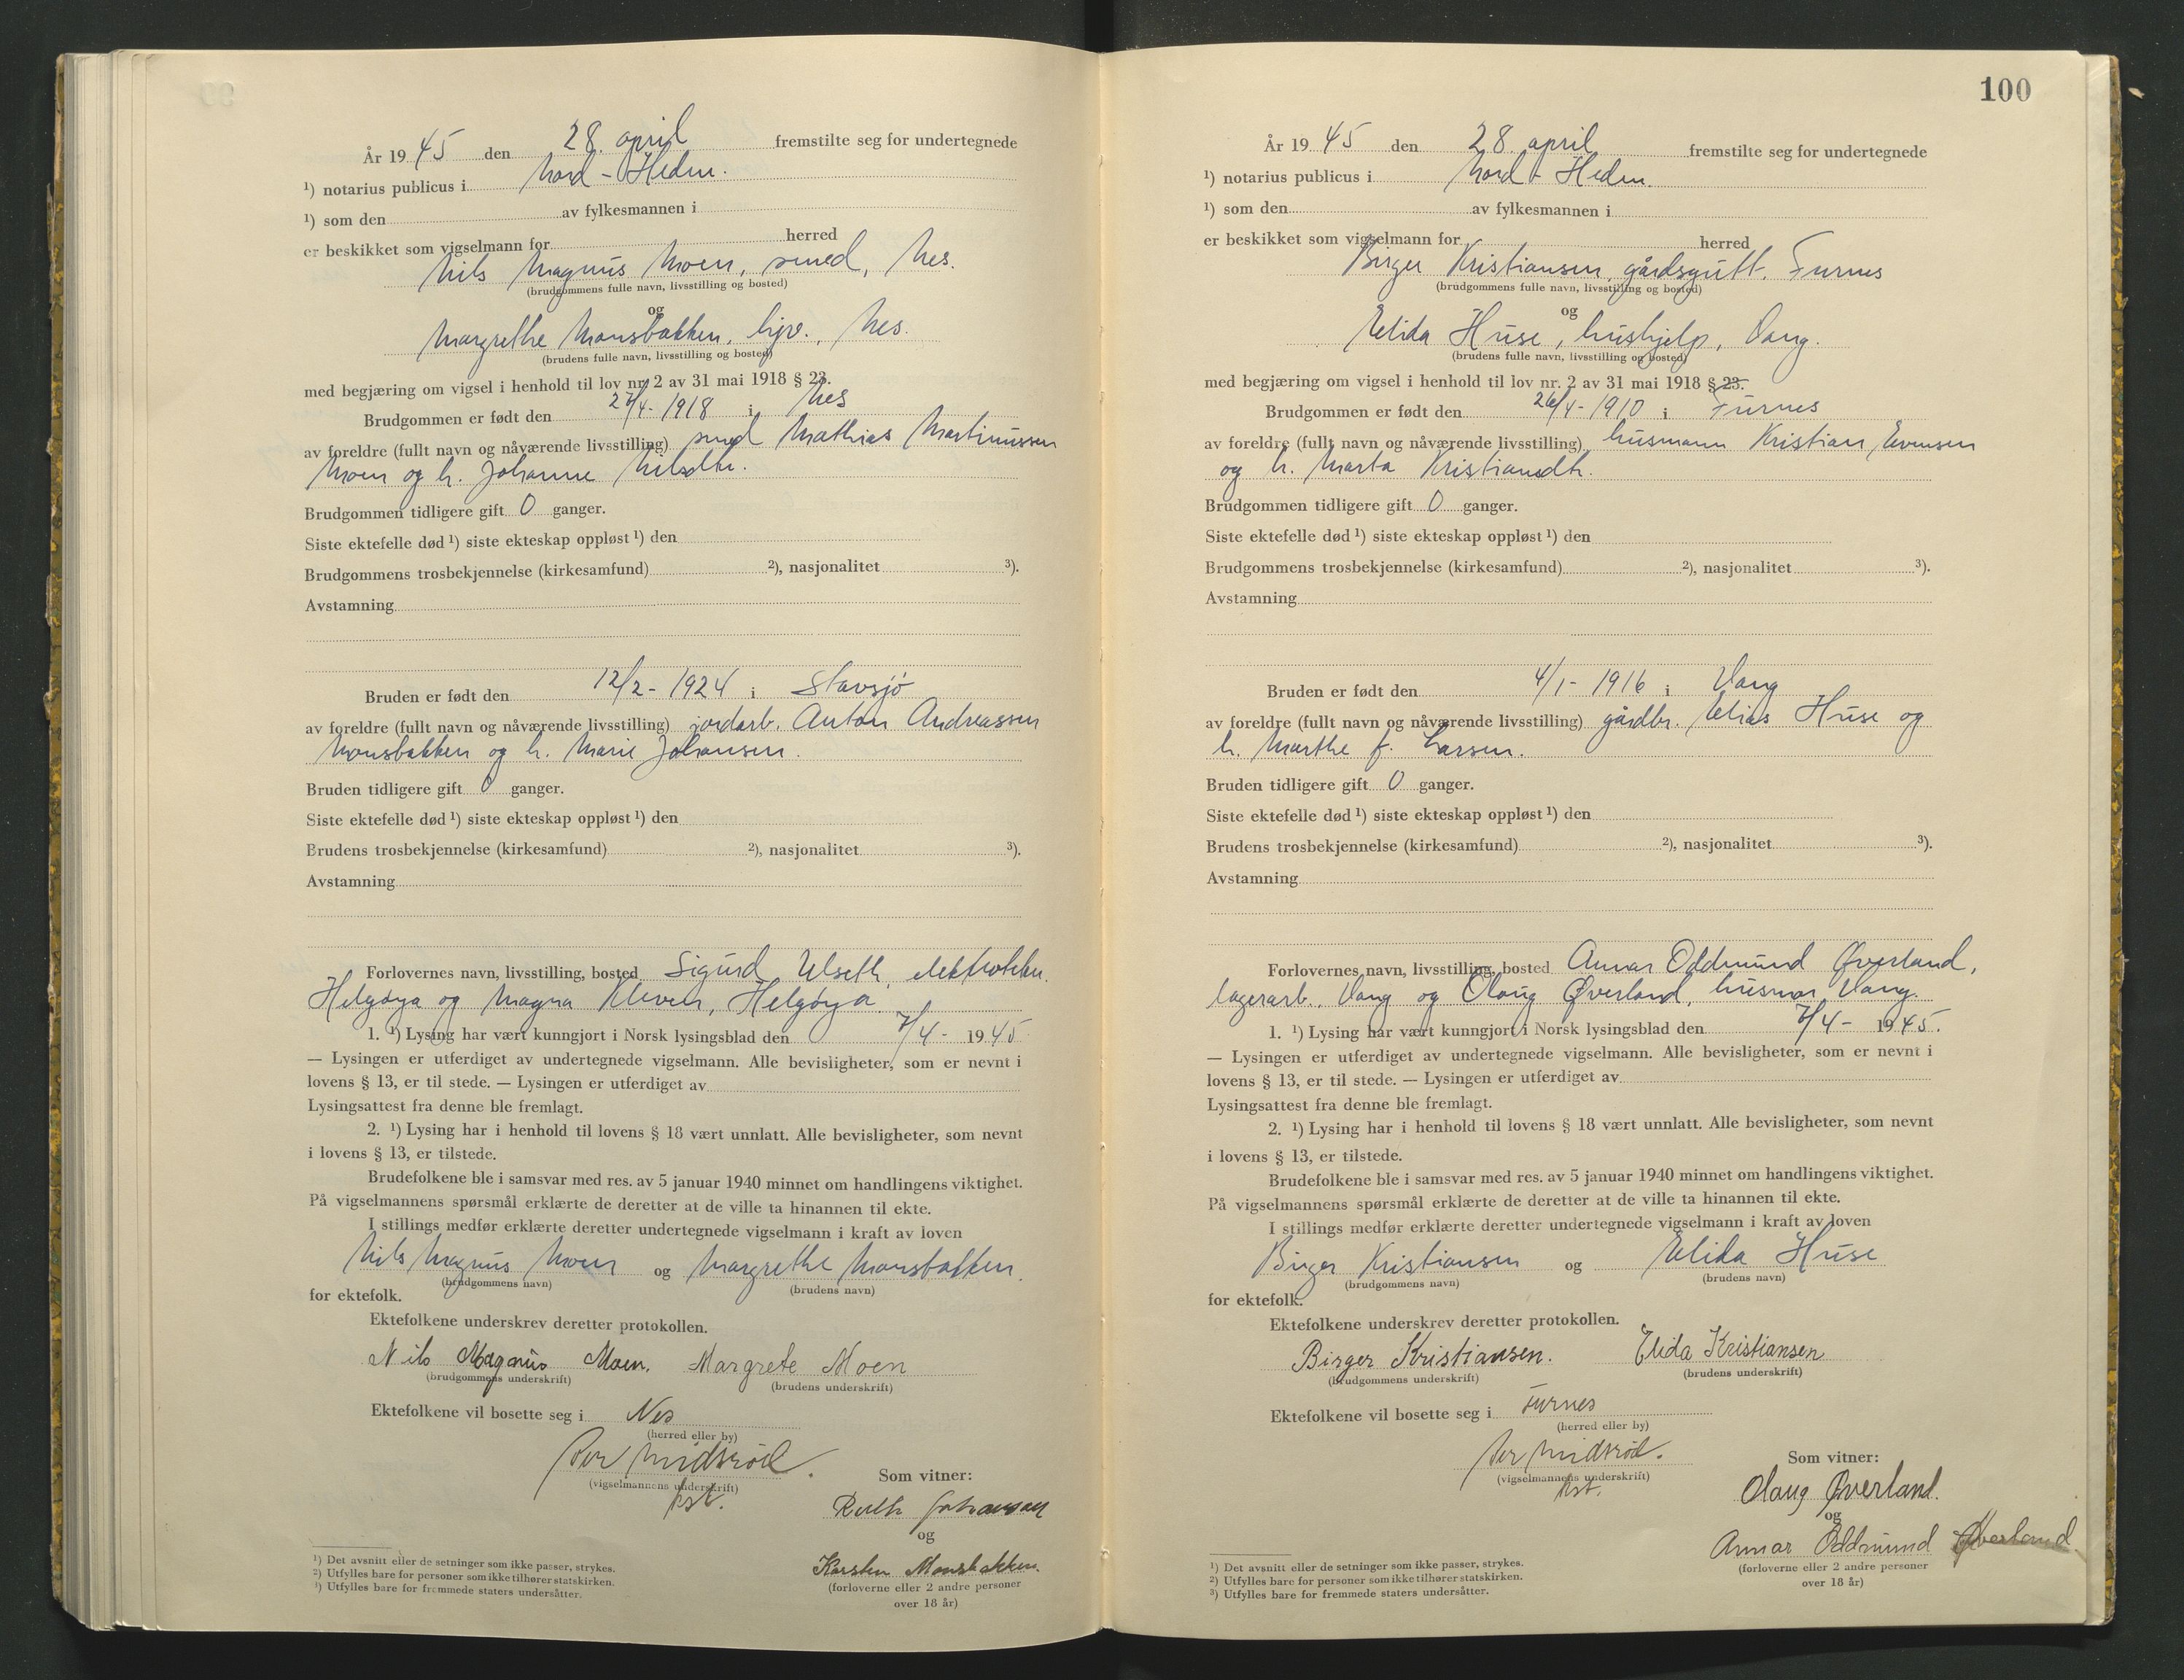 År 19 45 den 28. april fremstilte seg for undertegnede
¹) notarius publicus i Nord-Hedm.
¹) som den av fylkesmannen i
er beskikket som vigselmann for herred
Nils Magnus Moen, smed, Nes.
(brudgommens fulle navn, livsstilling og bosted)
og
Margrethe Monsbakken, hjv., Nes.
(brudens fulle navn, livsstilling og bosted)
med begjæring om vigsel i henhold til lov nr. 2 av 31 mai 1918 § 23.
Brudgommen er født den 27/4- 1918 i Nes
av foreldre (fullt navn og nåværende livsstilling) smed Mathias Martinussen
Moen og h. Johanne Nilsdtr.
Brudgommen tidligere gift 0 ganger.
Siste ektefelle død ¹) siste ekteskap oppløst ¹) den
Brudgommens trosbekjennelse (kirkesamfund) ²), nasjonalitet ³).
Avstamning
Bruden er født den 12/2- 1924 i Stavsjø
av foreldre (fullt navn og nåværende livsstilling) jordarb. Anton Andreassen
Monsbakken og h. Marie Johansen.
Bruden tidligere gift 0 ganger.
Siste ektefelle død ¹) siste ekteskap oppløst ¹) den
Brudens trosbekjennelse (kirkesamfund) ²), nasjonalitet ³).
Avstamning
Forlovernes navn, livsstilling, bosted Sigurd Ulseth,
Helgøya og Magna Kleven, Helgøya.
1. ¹) Lysing har vært kunngjort i Norsk lysingsblad den 7/4- 19 45
— Lysingen er utferdiget av undertegnede vigselmann. Alle bevisligheter, som er nevnt i
lovens § 13, er til stede. — Lysingen er utferdiget av
Lysingsattest fra denne ble fremlagt.
2. ¹) Lysing har i henhold til lovens § 18 vært unnlatt. Alle bevisligheter, som nevnt
i lovens § 13, er tilstede.
Brudefolkene ble i samsvar med res. av 5 januar 1940 minnet om handlingens viktighet.
På vigselmannens spørsmål erklærte de deretter at de ville ta hinannen til ekte.
I stillings medfør erklærte deretter undertegnede vigselmann i kraft av loven
Nils Magnus Moen og Margrethe Monsbakken.
(brudgommens navn) (brudens navn)
for ektefolk.
Ektefolkene underskrev deretter protokollen.
Nils Magnus Moen. Margrete Moen
(brudgommens underskrift) (brudens underskrift)
Ektefolkene vil bosette seg i Nes
(herred eller by)
Per Midsröd.
(vigselmannens underskrift)
kst.
Som vitner:
Ruth Johansen
og
Karsten Monsbakken.
(forloverne eller 2 andre personer
over 18 år)
¹) Det avsnitt eller de setninger som ikke passer, strykes.
²) Utfylles bare for personer som ikke tilhører statskirken.
³) Utfylles bare for fremmede staters undersåtter.
100
År 19 45 den 28. april fremstilte seg for undertegnede
¹) notarius publicus i Nord-Hedm.
¹) som den av fylkesmannen i
er beskikket som vigselmann for herred
Birger Kristiansen, gårdsgutt, Furnes
(brudgommens fulle navn, livsstilling og bosted)
og
Elida Huse, hushjelp, Vang.
(brudens fulle navn, livsstilling og bosted)
med begjæring om vigsel i henhold til lov nr. 2 av 31 mai 1918 § 23.
Brudgommen er født den 26/4- 1910 i Furnes
av foreldre (fullt navn og nåværende livsstilling) husmann Kristian Evensen
og h. Marta Kristiansdtr.
Brudgommen tidligere gift 0 ganger.
Siste ektefelle død ¹) siste ekteskap oppløst ¹) den
Brudgommens trosbekjennelse (kirkesamfund) ²), nasjonalitet ³).
Avstamning
Bruden er født den 4/1- 1916 i Vang
av foreldre (fullt navn og nåværende livsstilling) gårdbr. Elias Huse og
h. Marthe f. Larsen.
Bruden tidligere gift 0 ganger.
Siste ektefelle død ¹) siste ekteskap oppløst ¹) den
Brudens trosbekjennelse (kirkesamfund) ²), nasjonalitet ³).
Avstamning
Forlovernes navn, livsstilling, bosted Annar Oddmund Øverland,
lagerarb. Vang og Olaug Øverland, husmor Vang.
1. ¹) Lysing har vært kunngjort i Norsk lysingsblad den 7/4- 19 45.
— Lysingen er utferdiget av undertegnede vigselmann. Alle bevisligheter, som er nevnt i
lovens § 13, er til stede. — Lysingen er utferdiget av
Lysingsattest fra denne ble fremlagt.
2. ¹) Lysing har i henhold til lovens § 18 vært unnlatt. Alle bevisligheter, som nevnt
i lovens § 13, er tilstede.
Brudefolkene ble i samsvar med res. av 5 januar 1940 minnet om handlingens viktighet.
På vigselmannens spørsmål erklærte de deretter at de ville ta hinannen til ekte.
I stillings medfør erklærte deretter undertegnede vigselmann i kraft av loven
Birger Kristiansen og Elida Huse
(brudgommens navn) (brudens navn)
for ektefolk.
Ektefolkene underskrev deretter protokollen.
Birger Kristiansen. Elida Kristiansen
(brudgommens underskrift) (brudens underskrift)
Ektefolkene vil bosette seg i Furnes
(herred eller by)
Per Midsröd.
(vigselmannens underskrift)
kst.
Som vitner:
Olaug Øverland.
og
Annar Oddmund Øverland.
(forloverne eller 2 andre personer
over 18 år)
¹) Det avsnitt eller de setninger som ikke passer, strykes.
²) Utfylles bare for personer som ikke tilhører statskirken.
³) Utfylles bare for fremmede staters undersåtter.